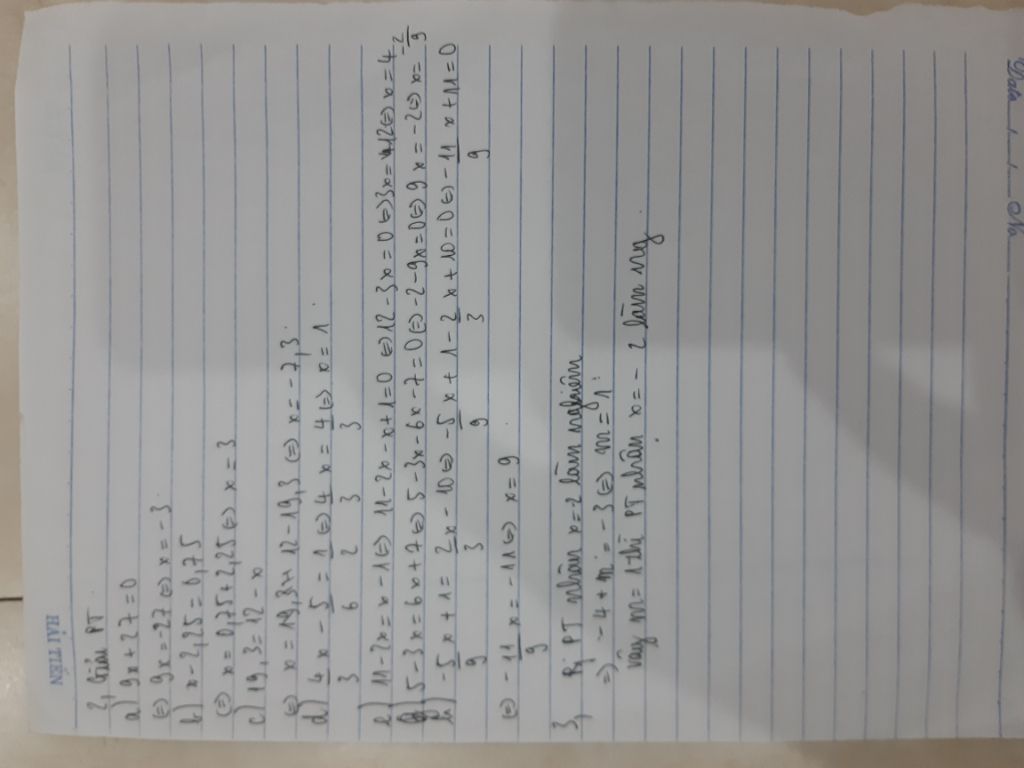 HẢI TIẾN
Date / / No
2, Giải PT.
a) 9x + 27 = 0
⇔ 9x = -27 ⇔ x = -3
b) x - 2,25 = 0,75
⇔ x = 0,75 + 2,25 ⇔ x = 3
c) 19,3 = 12 - x
⇔ x = 12 - 19,3 ⇔ x = -7,3
d) 4/3 x - 5/6 = 1/2 ⇔ 4/3 x = 4/3 ⇔ x = 1
e) 11 - 2x = x - 1 ⇔ 11 - 2x - x + 1 = 0 ⇔ 12 - 3x = 0 ⇔ 3x = 12 ⇔ x = 4
5 - 3x = 6x + 7 ⇔ 5 - 3x - 6x - 7 = 0 ⇔ -2 - 9x = 0 ⇔ 9x = -2 ⇔ x = -2/9
h) -5/9 x + 1 = 2/3 x - 10 ⇔ -5/9 x + 1 - 2/3 x + 10 = 0 ⇔ -11/9 x + 11 = 0
⇔ -11/9 x = -11 ⇔ x = 9
3, PT nhân x = -2 làm nghiên
⇒ -4 + m = -3 ⇔ m = 1
vây m = 1 thì PT nhân x = -2 làm ng